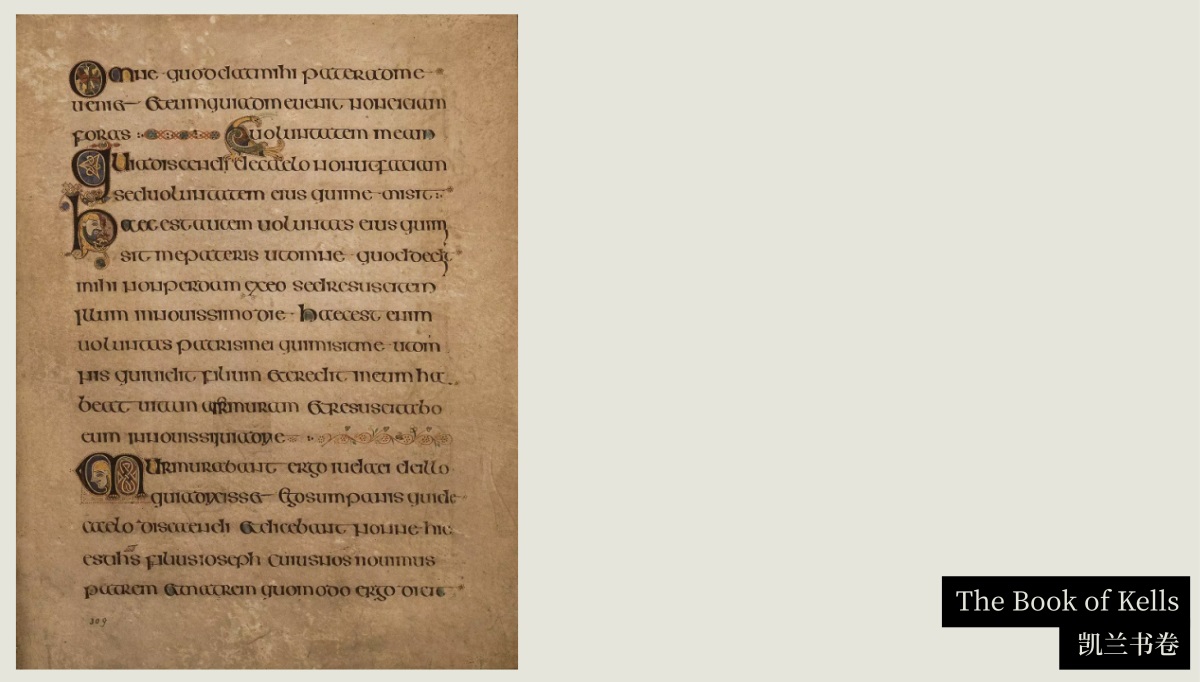 Omne quod dat mihi pater ad me
ueniet Et eum qui ad me uenit non eiciam
foras uoluntatem meam
Quia discendi de caelo non ut faciam
sed uoluntatem eius qui me misit
haec est autem uoluntas eius qui mi
sit me pateris ut omne quod dedit
mihi non perdam ex eo sed resuscitem
illum in nouissimo die haec est enim
uoluntas patris mei qui misit me ut om
nis qui uidit filium Et credit in eum ha
beat uitam Et resuscitabo
eum in
Murmurabant ergo iudaei de illo
quia dixisset Ego sum panis qui de
caelo discendi Et dicebant nonne hic
est ihs filius ioseph cuius nos nouimus
patrem Et matrem quomodo ergo dicit
309
The Book of Kells
凯兰书卷